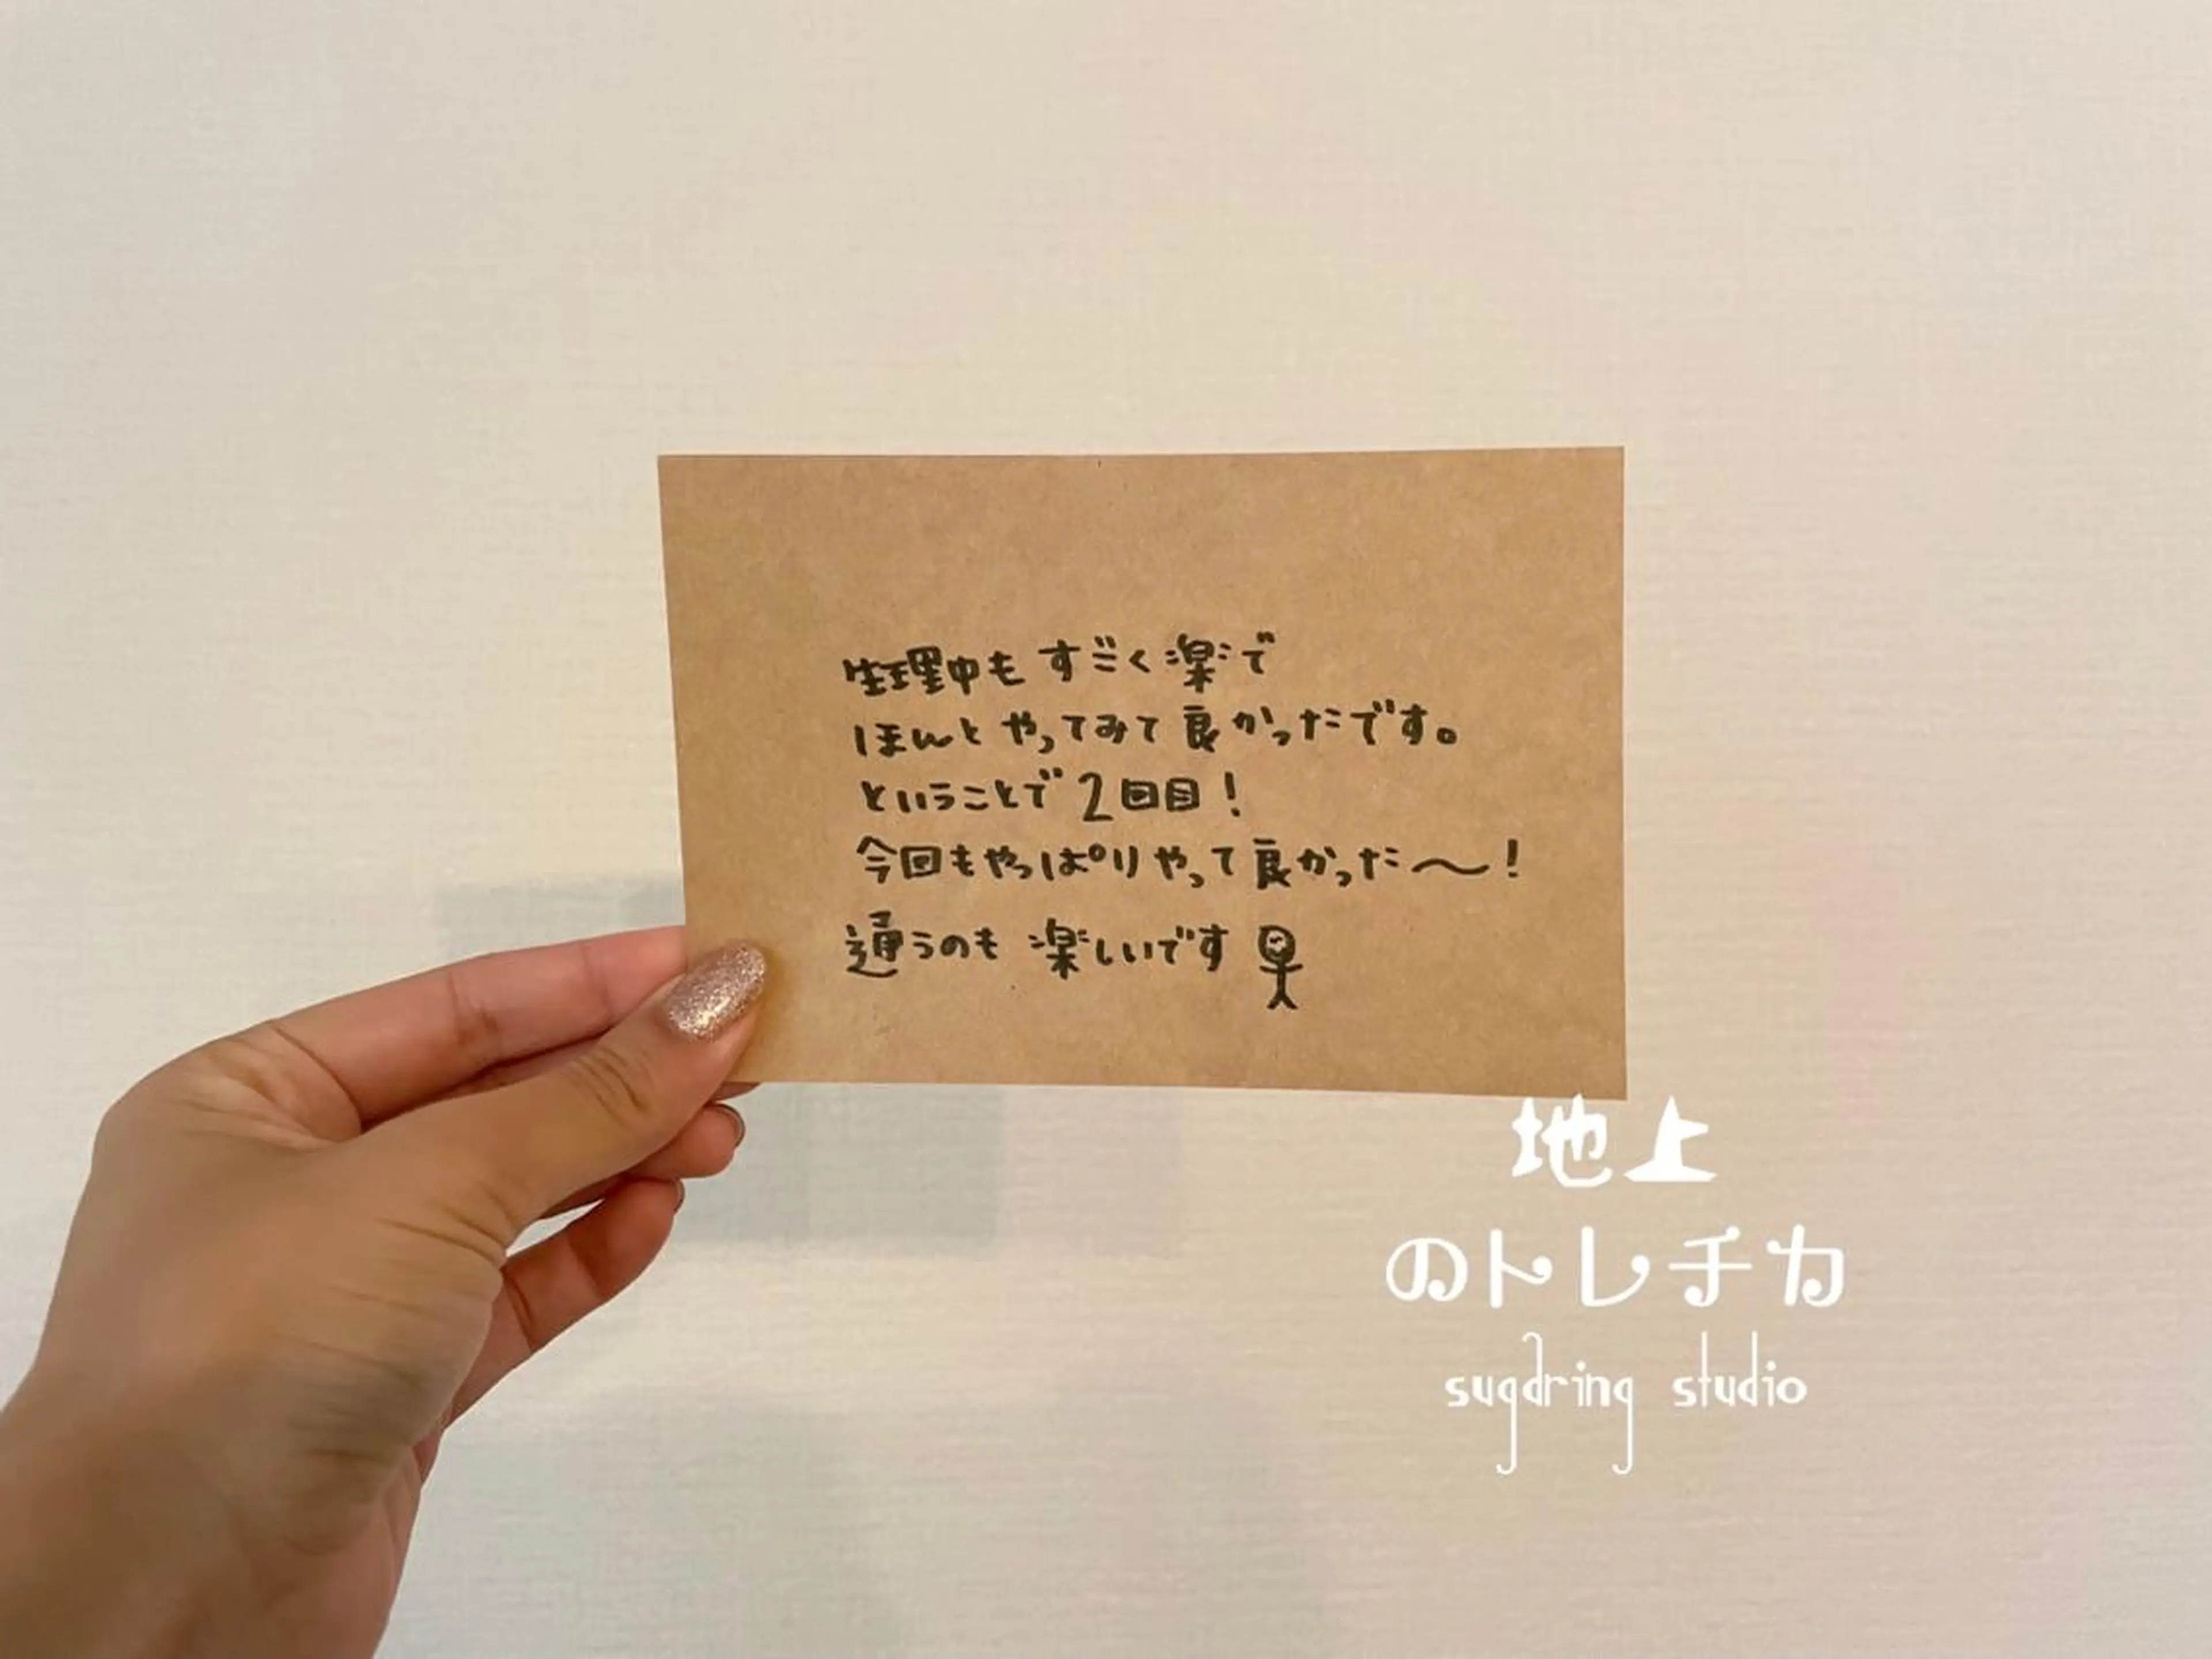 生理中も すごく楽で
ほんと やってみて 良かったです。
ということで 2回目!
今回もやっぱり やって 良かった〜!
通うのも 楽しいです
地上
のトレチカ
sugdring studio